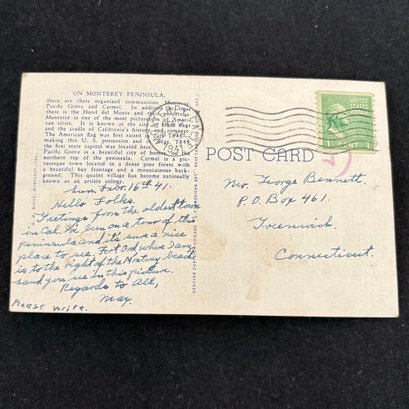 ON MONTEREY PENINSULA,
there are three organized communities, Monterey,
Pacific Grove and Carmel. In addition to these
there is the Hotel del Monte and its
Monterey is one of the most picturesque of Ameri-
can cities. It is known as the city of
and the cradle of California's history and romance.
The American flag was first raised in July 1846
making this U. S. possession and in Sept. 1849
the first state capitol was located here.
Pacific Grove is a beautiful city of homes on the
northern top of the peninsula. Carmel is a pic-
turesque town located in a dense pine forest with
a beautiful bay frontage and a mountainous
background. This quaint village has become nationally
known as an artists colony.
Sun. Febr. 16th 41.
Hello Folks.
Greetings from the oldest town
in Cal. I'm on a tour of this
peninsula and it's sure a nice
place to see. Fort Ord where I am
is to the right of the Monterey beach
sand you see in this picture.
Regards to All,
May.
Please write.
POST CARD
UNITED STATES
POSTAGE
1 CENT
1941
Mr. George Bennett
P.O. Box 461.
Greenwich
Connecticut.